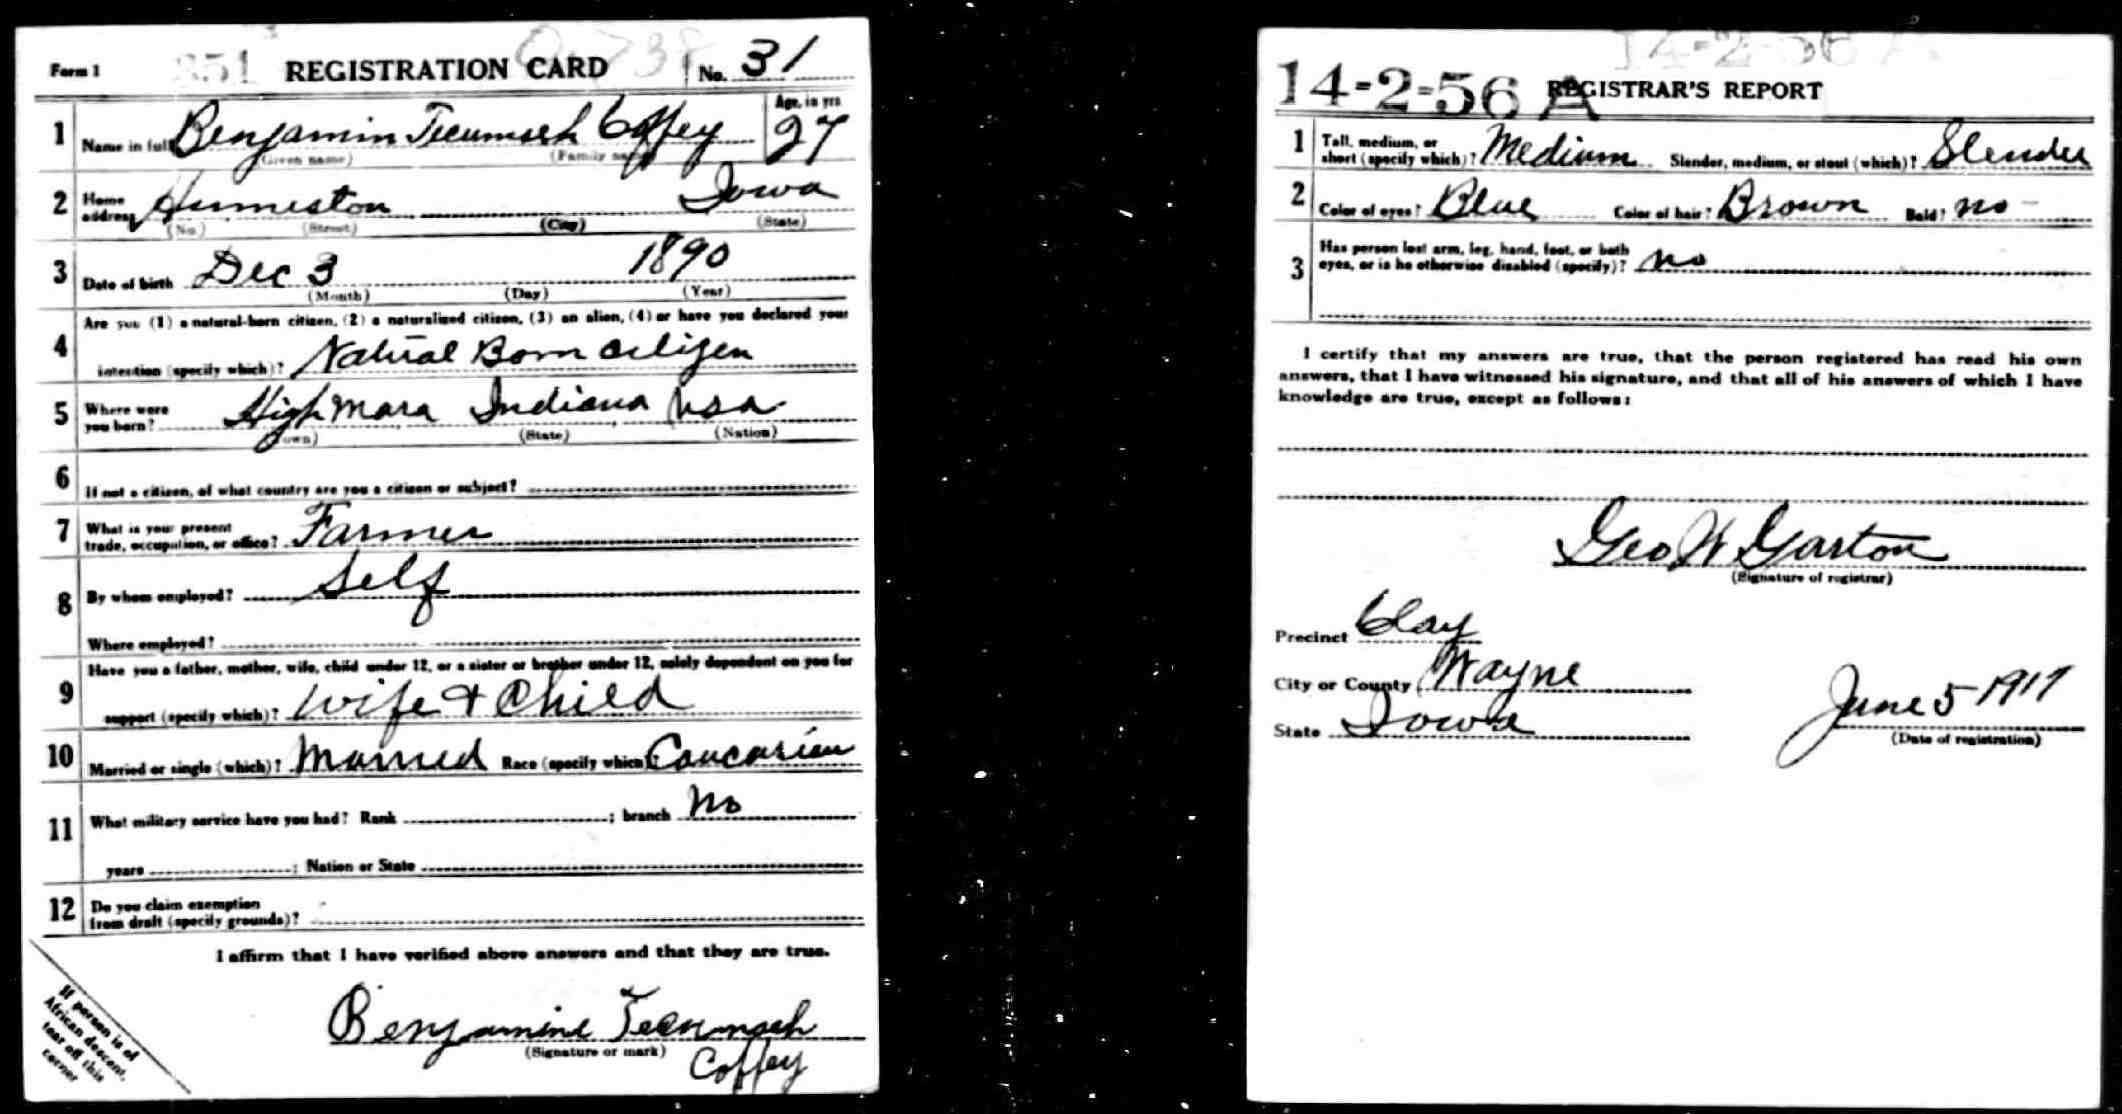 Form 1 351 REGISTRATION CARD No. 31
1 Name in full Benjamin Tecumseh Coffey Age, in yrs 27
(Given name) (Family name)
2 Home address Humeston Iowa
(No.) (Street) (City) (State)
3 Date of birth Dec 3 1890
(Month) (Day) (Year)
4 Are you (1) a natural-born citizen, (2) a naturalized citizen, (3) an alien, (4) or have you declared your
intention (specify which)? Natural Born citizen
5 Where were you born? High Mara Indiana USA
(Town) (State) (Nation)
6 If not a citizen, of what country are you a citizen or subject?
7 What is your present trade, occupation, or office? Farmer
8 By whom employed? Self
Where employed?
9 Have you a father, mother, wife, child under 12, or a sister or brother under 12, solely dependent on you for
support (specify which)? Wife + Child
10 Married or single (which)? Married Race (specify which) Caucasian
11 What military service have you had? Rank ; branch No
years ; Nation or State
12 Do you claim exemption
from draft (specify grounds)?
I affirm that I have verified above answers and that they are true.
Benjamine Tecumseh
(Signature or mark)
Coffey
If person is of
African descent,
tear off this
corner
14-2-56 A
14-2-56 A REGISTRAR'S REPORT
1 Tall, medium, or short (specify which)? Medium Slender, medium, or stout (which)? Slender
2 Color of eyes? Blue Color of hair? Brown Bald? no -
3 Has person lost arm, leg, hand, foot, or both
eyes, or is he otherwise disabled (specify)? no
I certify that my answers are true, that the person registered has read his own
answers, that I have witnessed his signature, and that all of his answers of which I have
knowledge are true, except as follows:
Geo W Garton
(Signature of registrar)
Precinct Clay
City or County Wayne
State Iowa June 5 1917
(Date of registration)